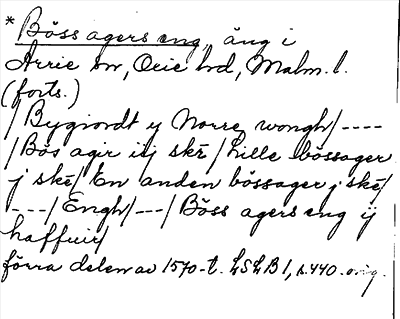 * Böss agers eng, äng i
Arrie sn, Oxie hd, Malm. l.
(forts.)
/ Bygiordt y Norre wongh/ ----
/ Bös agir iij ske / Lille bössager
j ske / En anden bössager j ske/
---/ Engh/ ---/ Böss agers eng ij
haffuir/
förra delen av 1570-t. LSLB 1, s. 440. orig.